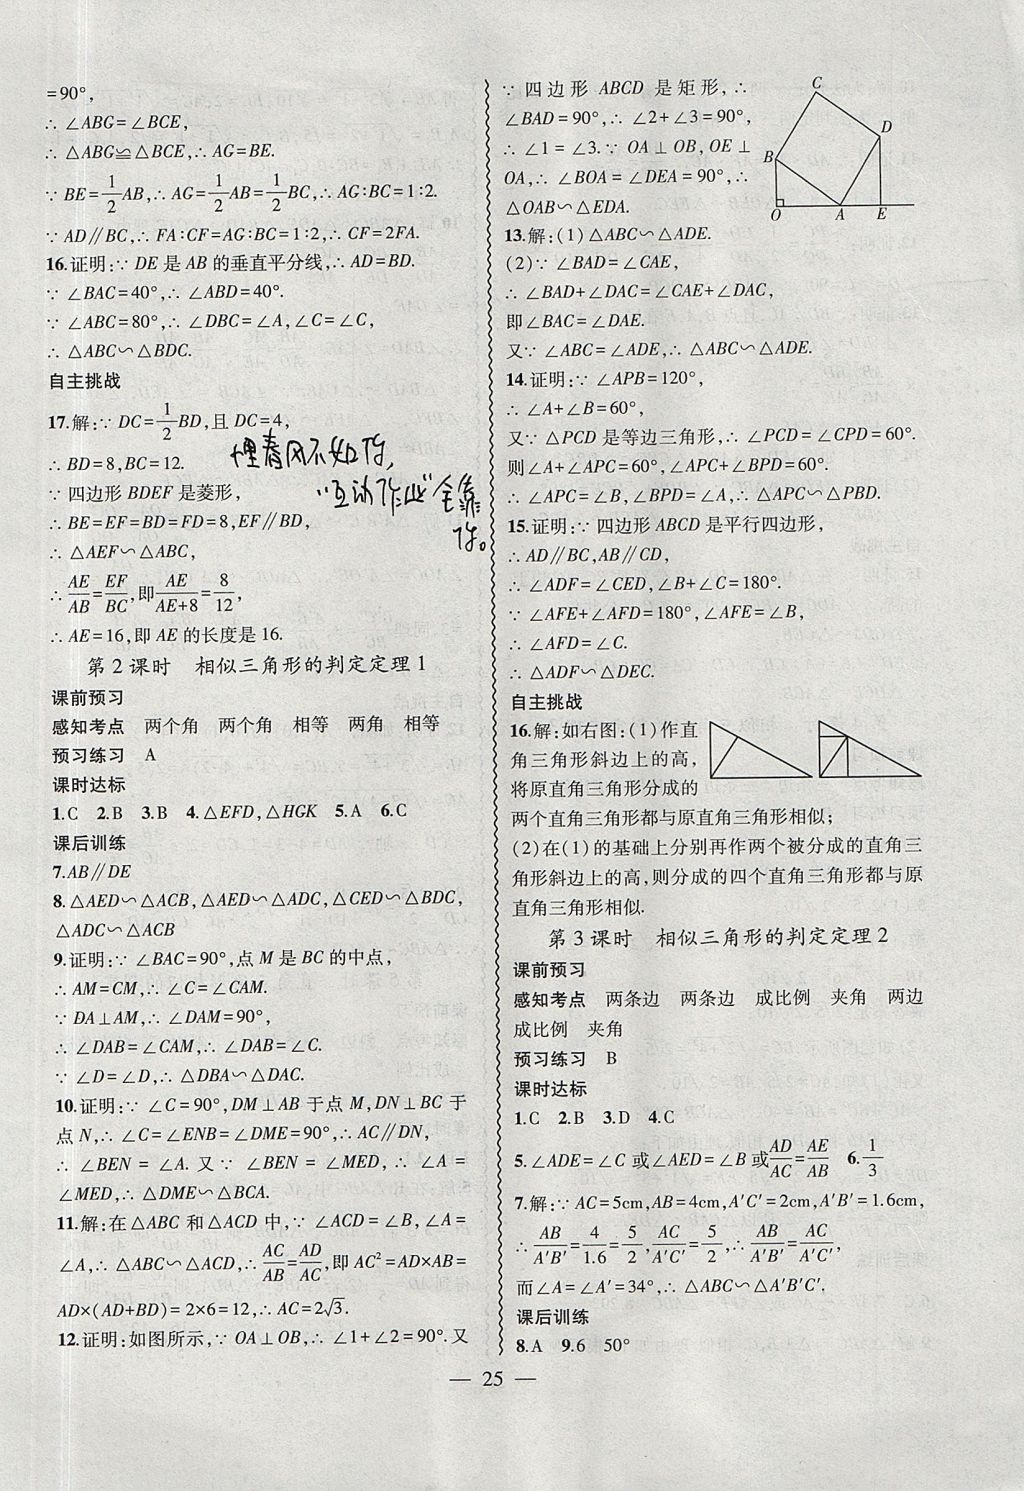 =90°,
∴ ∠ABG=∠BCE,
∴ △ABG≌△BCE,∴ AG=BE.
∵ BE=1/2AB,∴ AG=1/2AB=1/2BC,∴ AG∶BC=1∶2.
∵ AD∥BC,∴ FA∶CF=AG∶BC=1∶2,∴ CF=2FA.
16.证明:∵ DE 是 AB 的垂直平分线,∴ AD=BD.
∵ ∠BAC=40°,∴ ∠ABD=40°.
∵ ∠ABC=80°,∴ ∠DBC=∠A,∠C=∠C,
∴ △ABC∽△BDC.
自主挑战
17.解:∵ DC=1/2BD,且 DC=4,
∴ BD=8,BC=12.
∵ 四边形 BDEF 是菱形,
∴ BE=EF=BD=FD=8,EF∥BD,
∴ △AEF∽△ABC,
∴ AE/AB=EF/BC,即AE/AE+8=8/12,
∴ AE=16,即 AE 的长度是 16.
春风不如你,
“互动作业”全靠
你。
第 2 课时 相似三角形的判定定理 1
课前预习
感知考点 两个角 两个角 相等 两角 相等
预习练习 A
课时达标
1.C 2.B 3.B 4.△EFD,△HGK 5.A 6.C
课后训练
7.AB∥DE
8.△AED∽△ACB,△AED∽△ADC,△CED∽△BDC,
△ADC∽△ACB
9.证明:∵ ∠BAC=90°,点 M 是 BC 的中点,
∴ AM=CM,∴ ∠C=∠CAM.
∵ DA⊥AM,∴ ∠DAM=90°,
∴ ∠DAB=∠CAM,∴ ∠DAB=∠C.
∵ ∠D=∠D,∴ △DBA∽△DAC.
10.证明:∵ ∠C=90°,DM⊥AB 于点 M,DN⊥BC 于
点 N,∴ ∠C=∠ENB=∠DME=90°,∴ AC∥DN,
∴ ∠BEN = ∠A. 又∵ ∠BEN = ∠MED, ∴ ∠A =
∠MED,∴ △DME∽△BCA.
11.解:在△ABC 和△ACD 中,∵ ∠ACD=∠B,∠A=
∠A,∴ △ABC∽△ACD,∴ AC/AB=AD/AC,即 AC²=AD×AB=
AD×(AD+BD)=2×6=12,∴ AC=2√3.
12.证明:如图所示,∵ OA⊥OB,∴ ∠1+∠2=90°.又
∵ 四边形 ABCD 是矩形,∴
∠BAD=90°,∴ ∠2+∠3=90°,
∴ ∠1=∠3.∵ OA⊥OB,OE⊥
OA,∴ ∠BOA=∠DEA=90°,∴
△OAB∽△EDA.
C
D
B
O A E
13.解:(1)△ABC∽△ADE.
(2)∵ ∠BAD=∠CAE,
∴ ∠BAD+∠DAC=∠CAE+∠DAC,
即∠BAC=∠DAE.
又∵ ∠ABC=∠ADE,∴ △ABC∽△ADE.
14.证明:∵ ∠APB=120°,
∴ ∠A+∠B=60°,
又∵ △PCD 是等边三角形,∴ ∠PCD=∠CPD=60°.
则∠A+∠APC=60°,∠APC+∠BPD=60°.
∴ ∠APC=∠B,∠BPD=∠A,∴ △APC∽△PBD.
15.证明:∵ 四边形 ABCD 是平行四边形,
∴ AD∥BC,AB∥CD,
∴ ∠ADF=∠CED,∠B+∠C=180°.
∵ ∠AFE+∠AFD=180°,∠AFE=∠B,
∴ ∠AFD=∠C.
∴ △ADF∽△DEC.
自主挑战
16.解:如右图:(1)作直
角三角形斜边上的高,
将原直角三角形分成的
两个直角三角形都与原直角三角形相似;
(2)在(1)的基础上分别再作两个被分成的直角三
角形斜边上的高,则分成的四个直角三角形都与原
直角三角形相似.
第 3 课时 相似三角形的判定定理 2
课前预习
感知考点 两条边 两条边 成比例 夹角 两边
成比例 夹角
预习练习 B
课时达标
1.C 2.B 3.D 4.C
5.∠ADE=∠C 或∠AED=∠B 或AD/AC=AE/AB 6.1/3
7.解:∵ AC=5cm,AB=4cm,A′C′=2cm,A′B′=1.6cm,
∴ AB/A′B′=4/1.6=5/2,AC/A′C′=5/2,∴ AB/A′B′=AC/A′C′,
而∠A=∠A′=34°,∴ △ABC∽△A′B′C′.
课后训练
8.A 9.6 50°
— 25 —